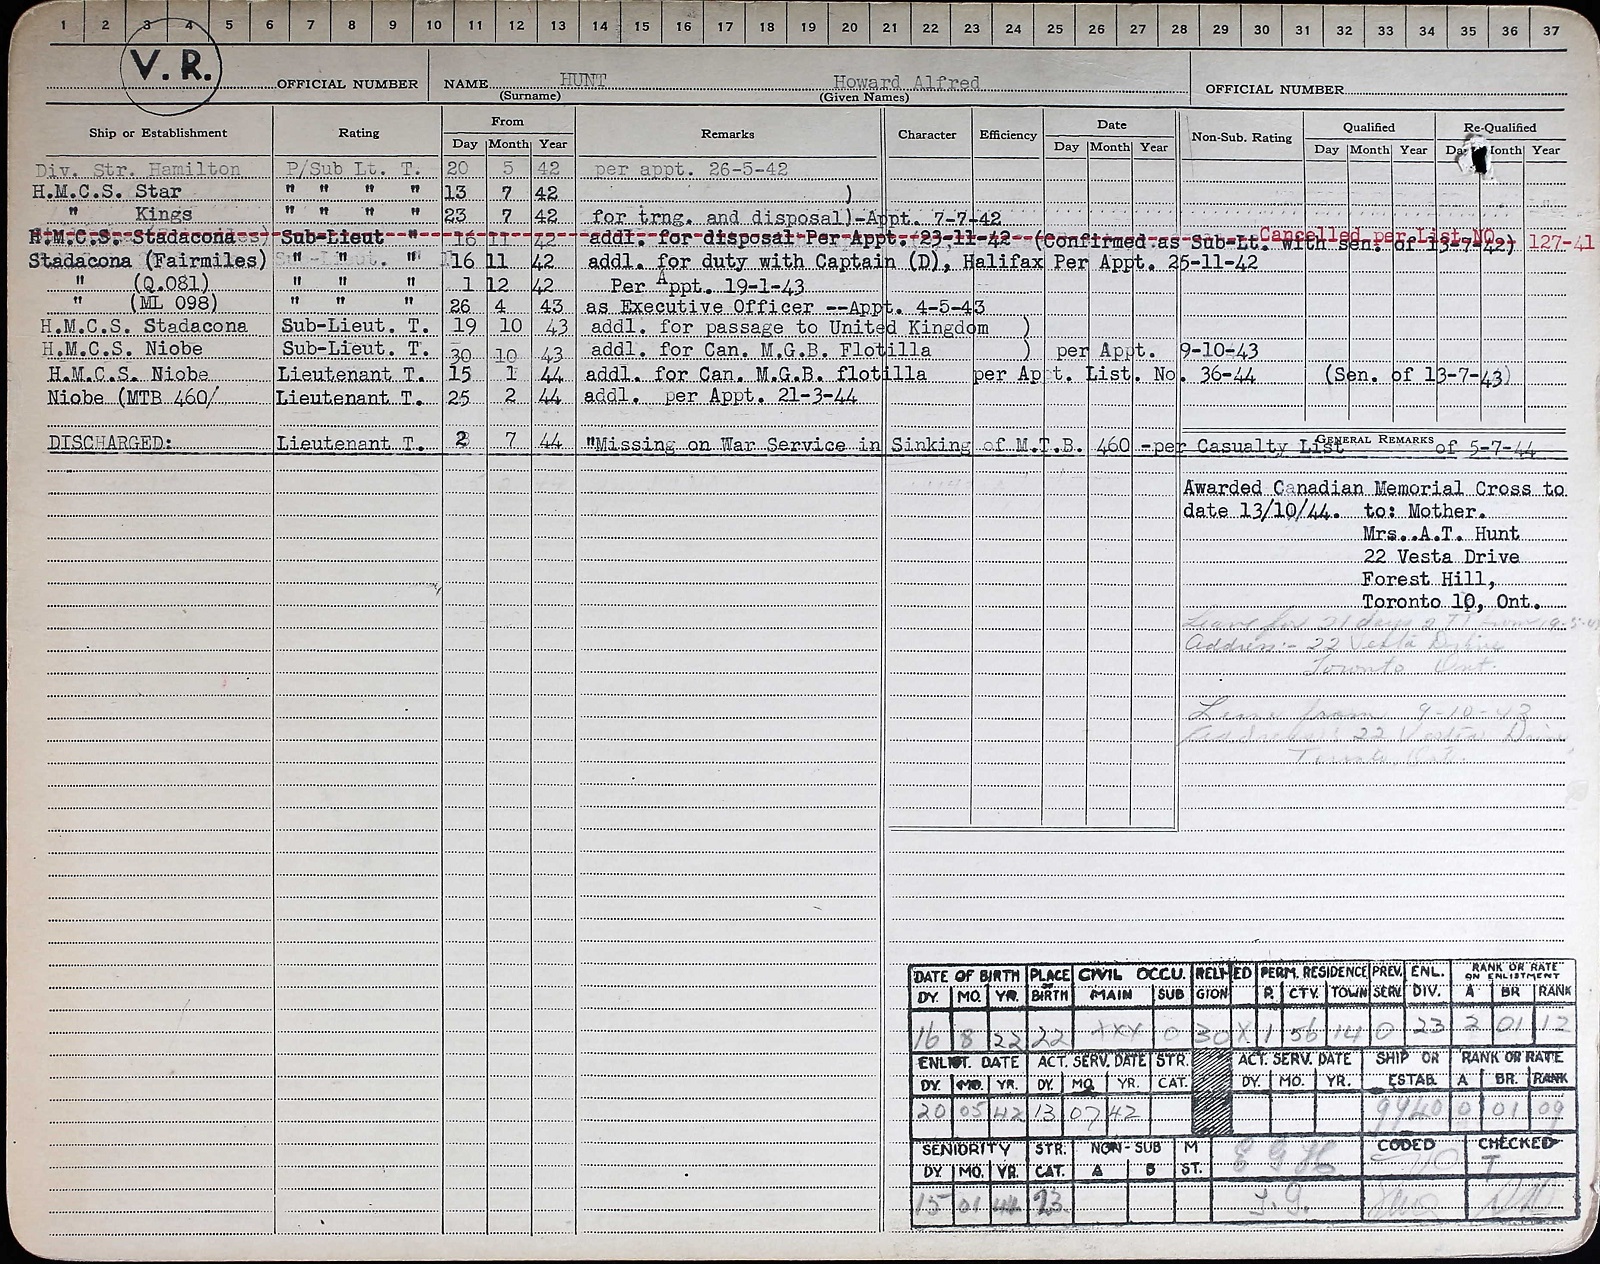 1 2 3 4 5 6 7 8 9 10 11 12 13 14 15 16 17 18 19 20 21 22 23 24 25 26 27 28 29 30 31 32 33 34 35 36 37
V.R.
OFFICIAL NUMBER NAME HUNT Howard Alfred OFFICIAL NUMBER
(Surname) (Given Names)
Ship or Establishment Rating From Remarks Character Efficiency Date Non-Sub. Rating Qualified Re-Qualified
Day Month Year Day Month Year Day Month Year Month Year
Div. Str. Hamilton P/Sub Lt. T. 20 5 42 per appt. 26-5-42
H.M.C.S. Star " " " " 13 7 42 )
" Kings " " " " 23 7 42 for trng. and disposal)-Appt. 7-7-42
H.M.C.S. Stadacona Sub-Lieut " 16 11 42 addl. for disposal Per Appt. 23-11-42 (Confirmed as Sub-Lt. with sen. of 13-7-42) Cancelled per List NO. 127-41
Stadacona (Fairmiles) " " " 16 11 42 addl. for duty with Captain (D), Halifax Per Appt. 25-11-42
" (Q.081) " " " 1 12 42 Per Appt. 19-1-43
" (ML 098) " " " 26 4 43 as Executive Officer --Appt. 4-5-43
H.M.C.S. Stadacona Sub-Lieut. T. 19 10 43 addl. for passage to United Kingdom )
H.M.C.S. Niobe Sub-Lieut. T. 30 10 43 addl. for Can. M.G.B. Flotilla ) per Appt. 9-10-43
H.M.C.S. Niobe Lieutenant T. 15 1 44 addl. for Can. M.G.B. flotilla per Appt. List. No. 36-44 (Sen. of 13-7-43)
Niobe (MTB 460/ Lieutenant T. 25 2 44 addl. per Appt. 21-3-44
GENERAL REMARKS
DISCHARGED: Lieutenant T. 2 7 44 "Missing on War Service in Sinking of M.T.B. 460 -per Casualty List of 5-7-44
Awarded Canadian Memorial Cross to
date 13/10/44. to: Mother.
Mrs. A.T. Hunt
22 Vesta Drive
Forest Hill,
Toronto 10, Ont.
Leave for 21 days 2 TT from 19-5-
Address:- 22 Vesta Drive
Toronto Ont.
Leave from 9-10-43
Address: 22 Vesta Drive
Toronto, Ont.
DATE OF BIRTH PLACE OF BIRTH CIVIL OCCU. RELIGION ED PERM. RESIDENCE PREV. SERV. ENL. DIV. RANK OR RATE ON ENLISTMENT
DY. MO. YR. MAIN SUB P. CTY. TOWN A BR RANK
16 8 22 22 XXY 0 30 X 1 56 14 0 23 2 01 12
ENLIST. DATE ACT. SERV. DATE STR. ACT. SERV. DATE SHIP OR RANK OR RATE
DY. MO. YR. DY. MO. YR. CAT. DY. MO. YR. ESTAB. A BR. RANK
20 05 42 13 07 42 9940 0 01 09
SENIORITY STR. NON-SUB M CODED CHECKED
DY. MO. YR. CAT. A B ST.
15 01 44 23